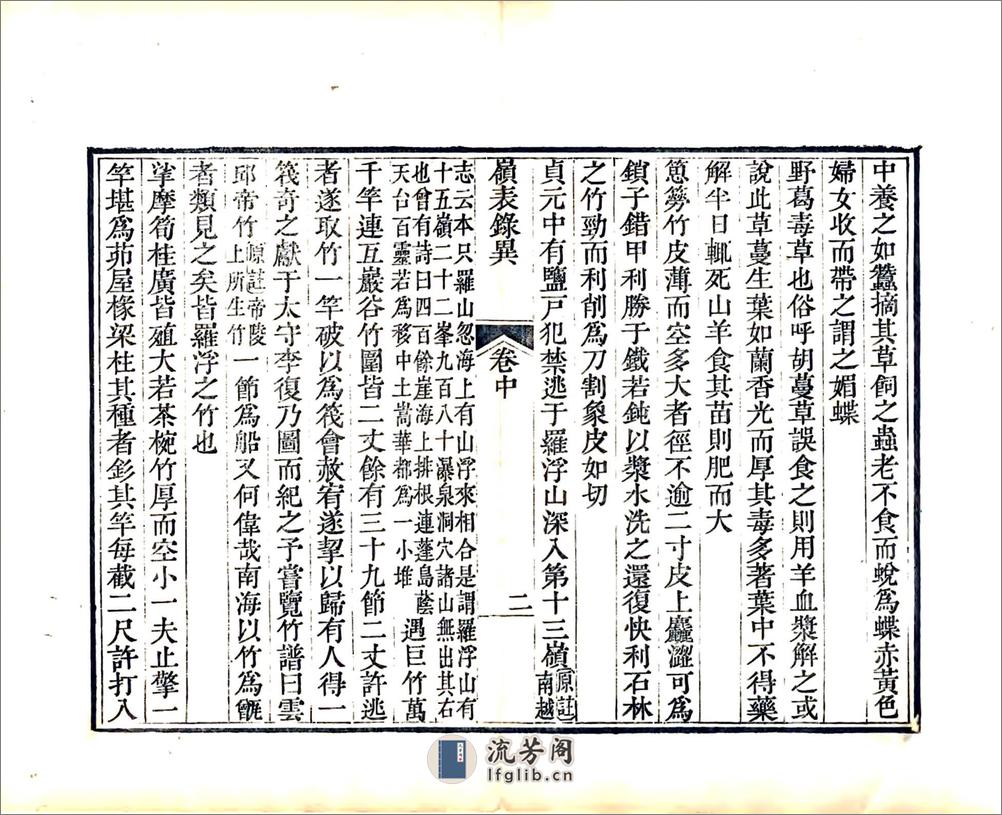 中養之如蠶摘其草飼之蟲老不食而蛻爲蝶赤黃色
婦女收而帶之謂之媚蝶
野葛毒草也俗呼胡蔓草誤食之則用羊血漿解之或
說此草蔓生葉如蘭香光而厚其毒多著葉中不得藥
解半日輒死山羊食其苗則肥而大
䈵簩竹皮薄而空多大者徑不逾二寸皮上麤澀可爲
鎖子錯甲利勝于鐵若鈍以漿水洗之還復快利石林
之竹勁而利削爲刀割象皮如切
貞元中有鹽戸犯禁逃于羅浮山深入第十三嶺原註南越
嶺表錄異
卷中
二
志云本只羅山忽海上有山浮來相合是謂羅浮山有
十五嶺二十二峯九百八十瀑泉洞穴諸山無出其右
也曾有詩曰四百餘崖海上排根連蓬島蔭
天台百靈若爲移中土嵩華都爲一小堆
遇巨竹萬
千竿連亙巖谷竹圍皆二丈餘有三十九節二丈許逃
者遂取竹一竿破以爲篾會赦宥遂挈以歸有人得一
篾奇之獻于太守李復乃圖而紀之予嘗覽竹譜曰雲
邱帝竹原註帝陵上所生竹一節爲船又何偉哉南海以竹爲甑
者類見之矣皆羅浮之竹也
摩筍桂廣皆殖大若茶椀竹厚而空小一夫止擎一
竿堪爲茆屋椽梁柱其種者彭其竿每截二尺許打入
流芳阁
lfglib.cn